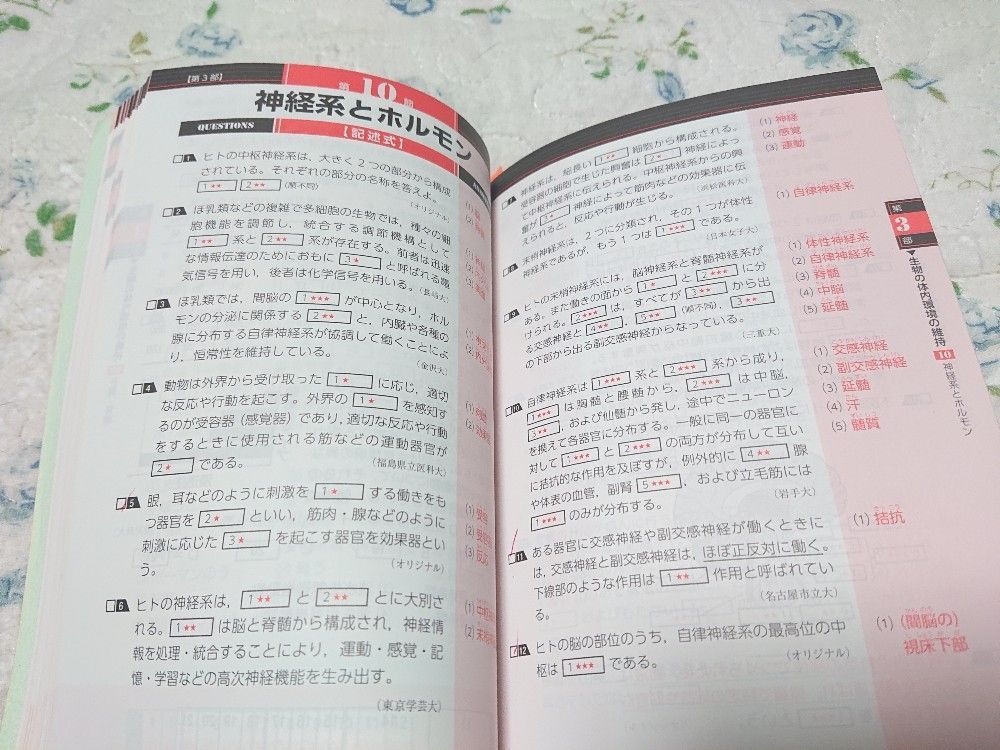 【第3部】
第10回
神経系とホルモン
QUESTIONS
【記述式】
1 ヒトの中枢神経系は，大きく2つの部分から構成
されている。それぞれの部分の名称を答えよ。
1★★ 2★★ （順不同）
（オリジナル）
2 ほ乳類などの複雑で多細胞の生物では，種々の細
胞機能を調節し，統合する調節機構として
1★★ 系と 2★★ 系が存在する。前者は迅速
な情報伝達のためにおもに 3★ と呼ばれる電
気信号を用い，後者は化学信号を用いる。（長崎大）
3 ほ乳類では，間脳の 1★★★ が中心となり，ホル
モンの分泌に関係する 2★★ と，内臓や各種の
腺に分布する自律神経系が協調して働くことによ
り，恒常性を維持している。
（金沢大）
4 動物は外界から受け取った 1★ に応じ，適切
な反応や行動を起こす。外界の 1★ を感知す
るのが受容器（感覚器）であり，適切な反応や行動
をするときに使用される筋などの運動器官が
2★ である。
（福島県立医科大）
5 眼，耳などのように刺激を 1★ する働きをも
つ器官を 2★ といい，筋肉・腺などのように
刺激に応じた 3★ を起こす器官を効果器とい
う。
（オリジナル）
(1) 受容
(2) 受容
(3) 反応
6 ヒトの神経系は， 1★★ と 2★★ とに大別さ
れる。 1★★ は脳と脊髄から構成され，神経情
報を処理・統合することにより，運動・感覚・記
憶・学習などの高次神経機能を生み出す。
（東京学芸大）
(1) 中枢
(2) 末梢
神経系は，細長い 1★★ 細胞から構成される。
受容器の細胞で生じた興奮は 2★ 神経によっ
て中枢神経系に伝えられる。中枢神経系からの興
奮が 3★ 神経によって筋肉などの効果器に伝
えられると，反応や行動が生じる。
（浜松医科大）
(1) 神経
(2) 感覚
(3) 運動
末梢神経系は，2つに分類され，その1つが体性
神経系であるが，もう1つは 1★★★ である。
（日本女子大）
(1) 自律神経系
ヒトの末梢神経系には，脳神経系と脊髄神経系が
ある。また働きの面から 1★ と 2★★★ に分
けられる。 2★★★ は，すべてが 3★★ から出
る交感神経と 4★★ ， 5★★ （順不同）， 3★★
の下部から出る副交感神経からなっている。
（三重大）
(1) 体性神経系
(2) 自律神経系
(3) 脊髄
(4) 中脳
(5) 延髄
10 自律神経系は 1★★★ 系と 2★★★ 系から成り，
1★★★ は胸髄と腰髄から， 2★★★ は中脳，
3★★ ，および仙髄から発し，途中でニューロン
を換えて各器官に分布する。一般に同一の器官に
対して 1★★★ と 2★★★ の両方が分布して互い
に拮抗的な作用を及ぼすが，例外的に 4★★ 腺
や体表の血管，副腎 5★★★ ，および立毛筋には
1★★★ のみが分布する。
（岩手大）
(1) 交感神経
(2) 副交感神経
(3) 延髄
(4) 汗
(5) 髄質
11 ある器官に交感神経や副交感神経が働くときに
は，交感神経と副交感神経は，ほぼ正反対に働く。
下線部のような作用は 1★★ 作用と呼ばれてい
る。
（名古屋市立大）
(1) 拮抗
12 ヒトの脳の部位のうち，自律神経系の最高位の中
枢は 1★★★ である。
（オリジナル）
(1) (間脳の)
視床下部
第3部
▼生物の体内環境の維持
10 神経系とホルモン